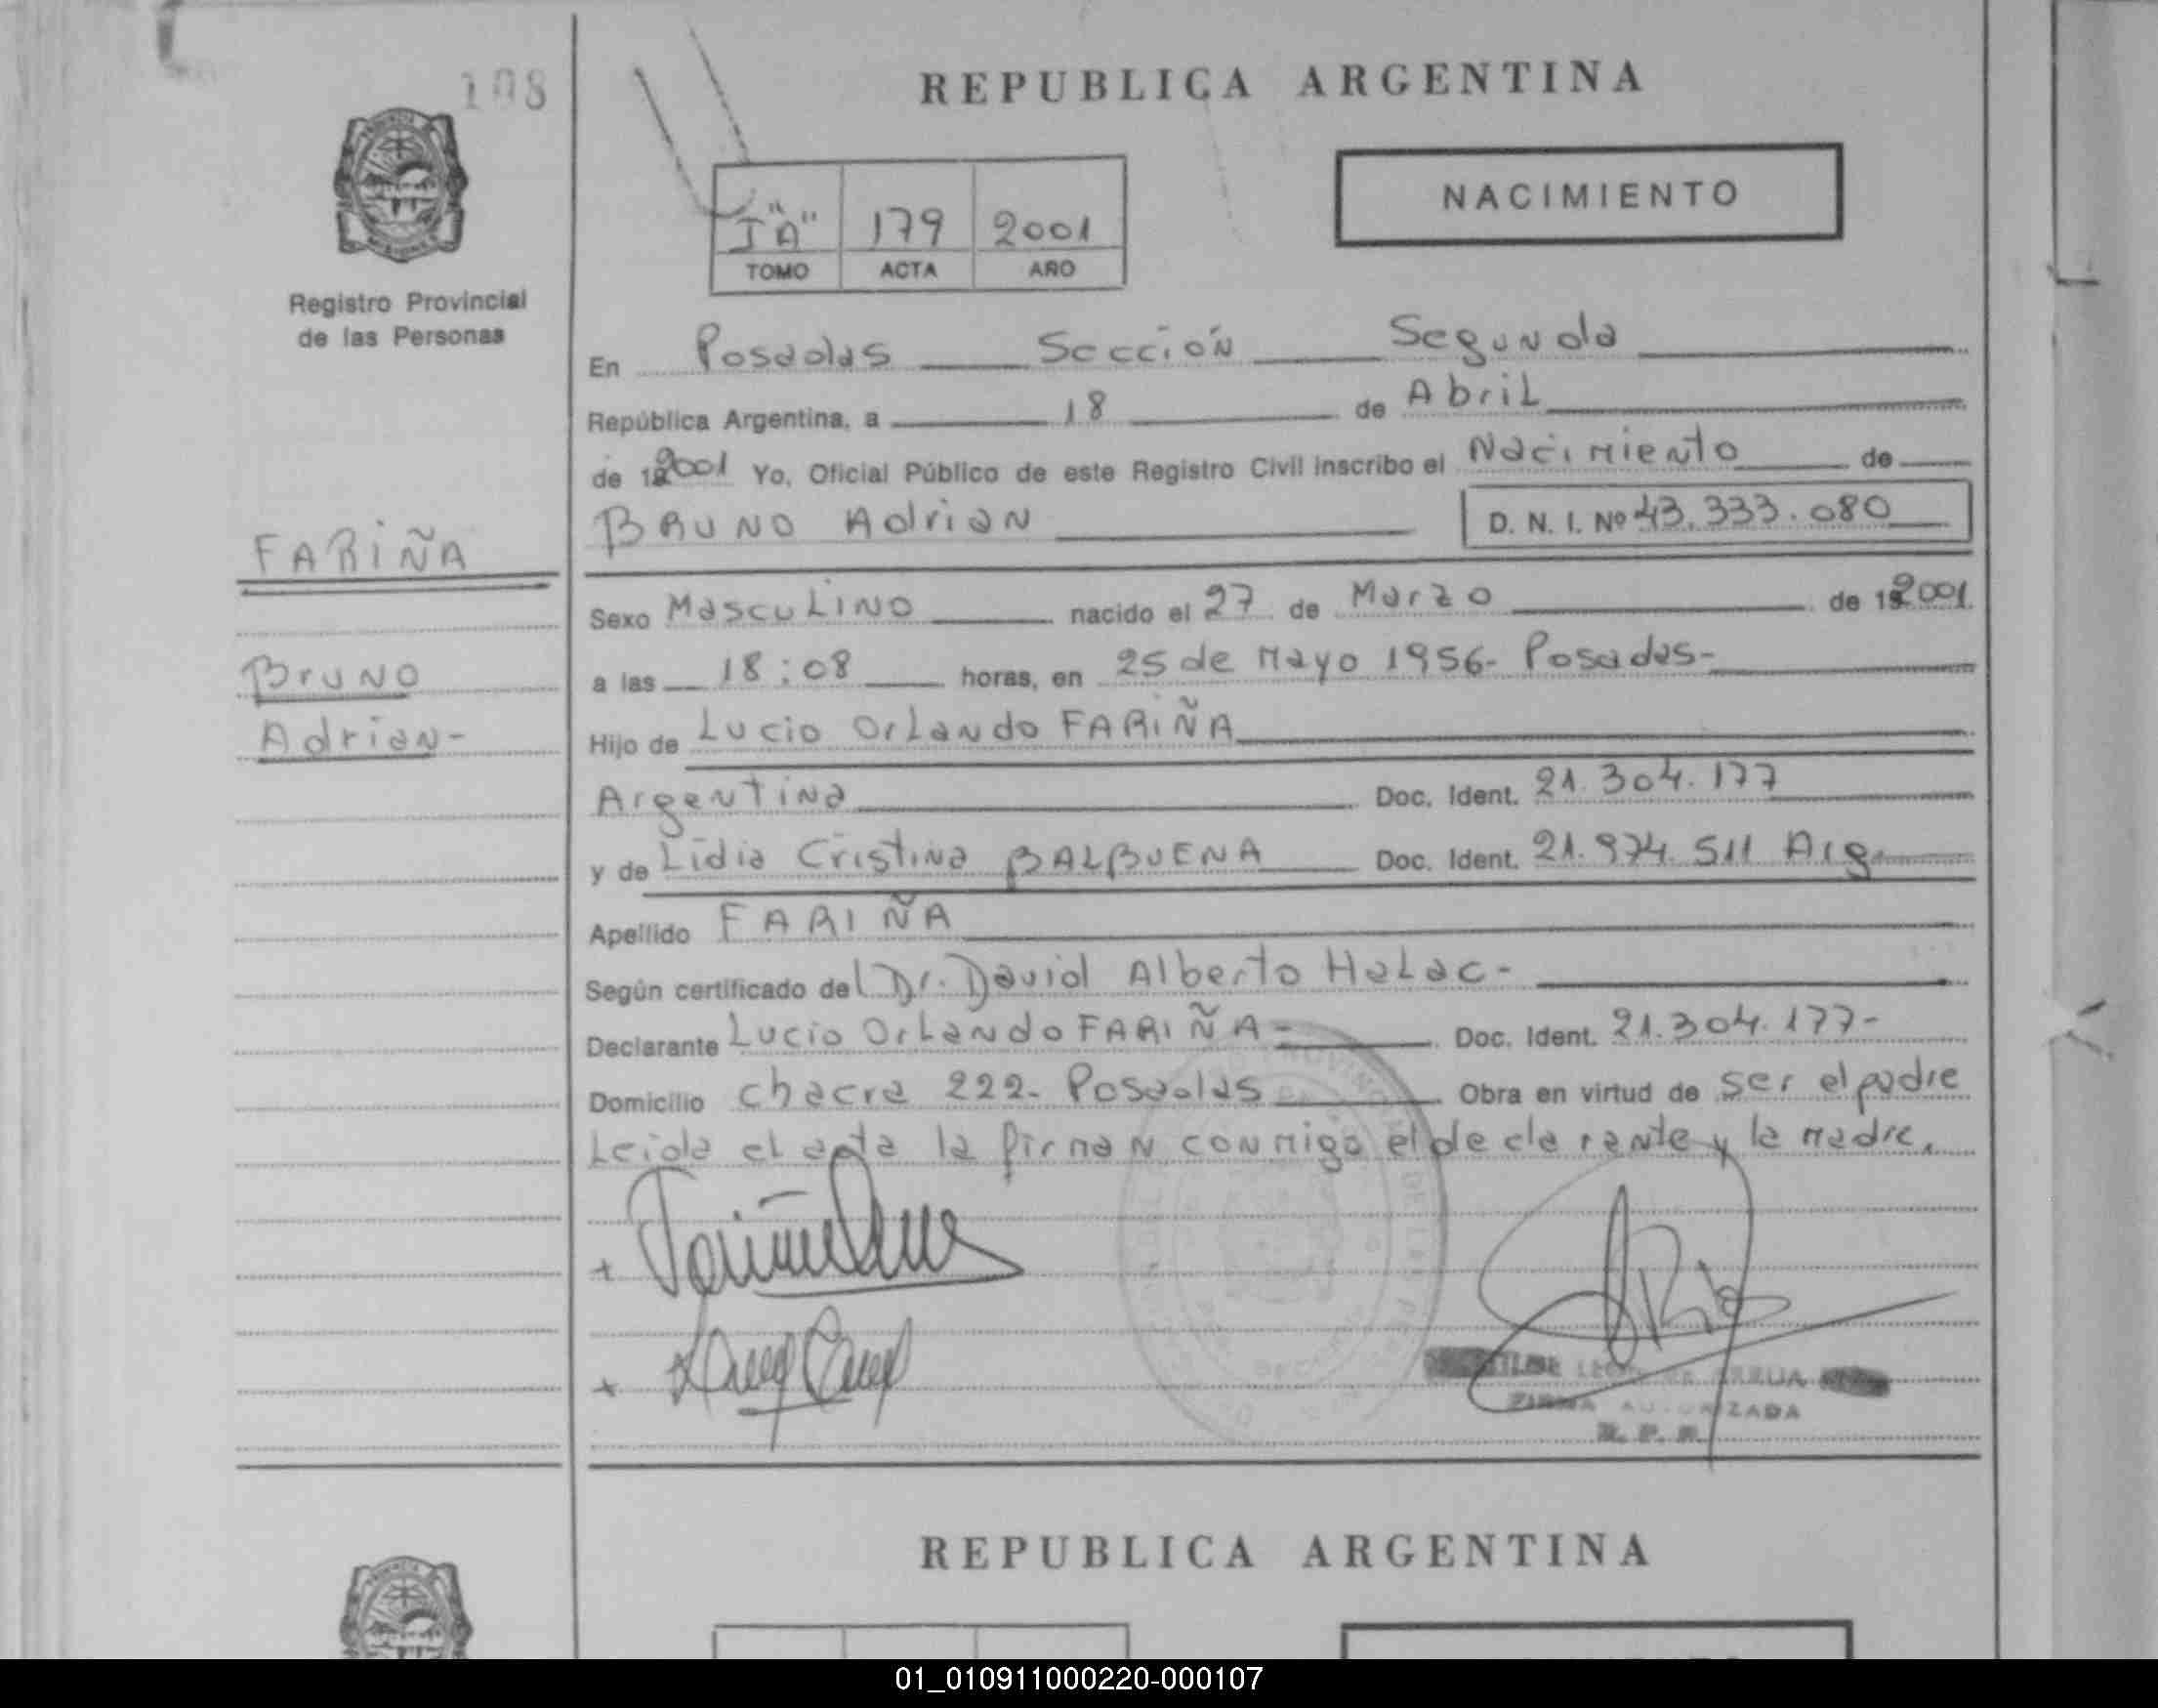 108
REPUBLICA ARGENTINA
NACIMIENTO
I "A" 179 2001
TOMO ACTA AÑO
Registro Provincial
de las Personas
En Posadas Sección Segunda
República Argentina, a 18 de Abril
de 2001 Yo, Oficial Público de este Registro Civil inscribo el Nacimiento de
BRUNO Adrian D. N. I. Nº 43.333.080
FARIÑA
Bruno
Adrian-
Sexo Masculino nacido el 27 de Marzo de 2001
a las 18:08 horas, en 25 de Mayo 1956- Posadas-
Hijo de Lucio Orlando FARIÑA
Argentina Doc. Ident. 21.304.177
y de Lidia Cristina BALBUENA Doc. Ident. 21.974.511 Arg.
Apellido FARIÑA
Según certificado del Dr. David Alberto Halac-
Declarante Lucio Orlando FARIÑA- Doc. Ident. 21.304.177-
Domicilio Chacra 222- Posadas Obra en virtud de ser el padre
Leida el acta la firman conmigo el declarante y la madre.
FIRMA AUTORIZADA
R. P. P.
REPUBLICA ARGENTINA
01_010911000220-000107